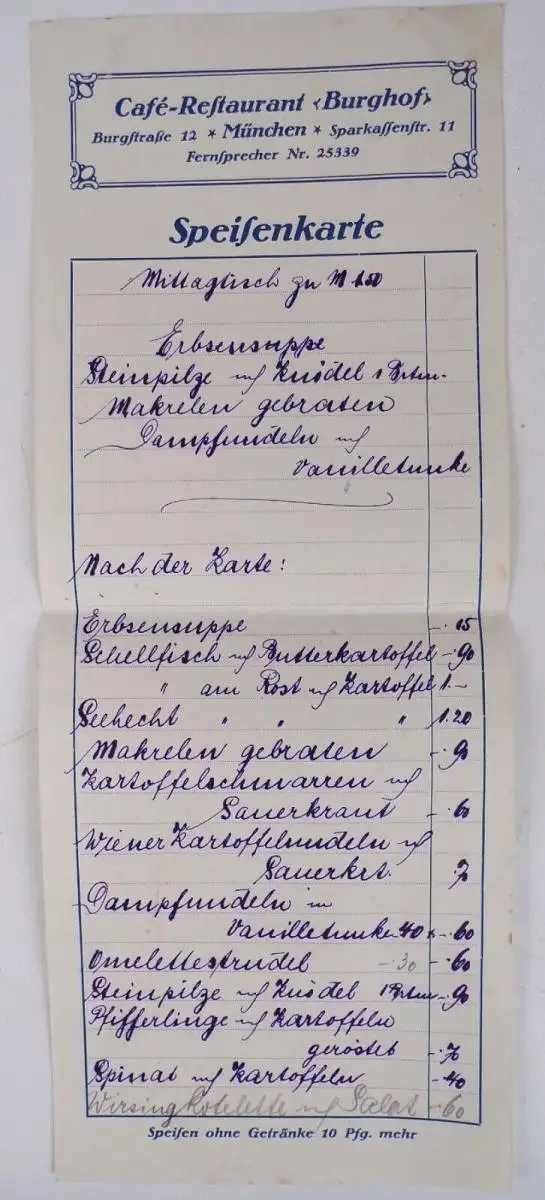 Café-Restaurant ‹Burghof›
Burgstraße 12 * München * Sparkassenstr. 11
Fernsprecher Nr. 25339
Speisenkarte
Mittagtisch zu M 1.50
Erbsensuppe
Steinpilze m/ Knödel 1 Brtwu.
Makrelen gebraten
Dampfnudeln m/
Vanilletunke
Nach der Karte:
Erbsensuppe -.15
Schellfisch m/ Butterkartoffel -.90
" am Rost m/ Kartoffel 1.-
Seehecht " " " 1.20
Makrelen gebraten -.90
Kartoffelschmarren m/
Sauerkraut -.60
Wiener Kartoffelnudeln m/
Sauerkrt. .70
Dampfnudeln m
Vanilletunke -.40 -.60
Omelettestrudel -.30 -.60
Steinpilze m/ Knödel -.90
Pfifferlinge m/ Kartoffeln
geröstet -.70
Spinat m/ Kartoffeln -.40
Wirsing Kotelette m/ Salat -.60
Speisen ohne Getränke 10 Pfg. mehr